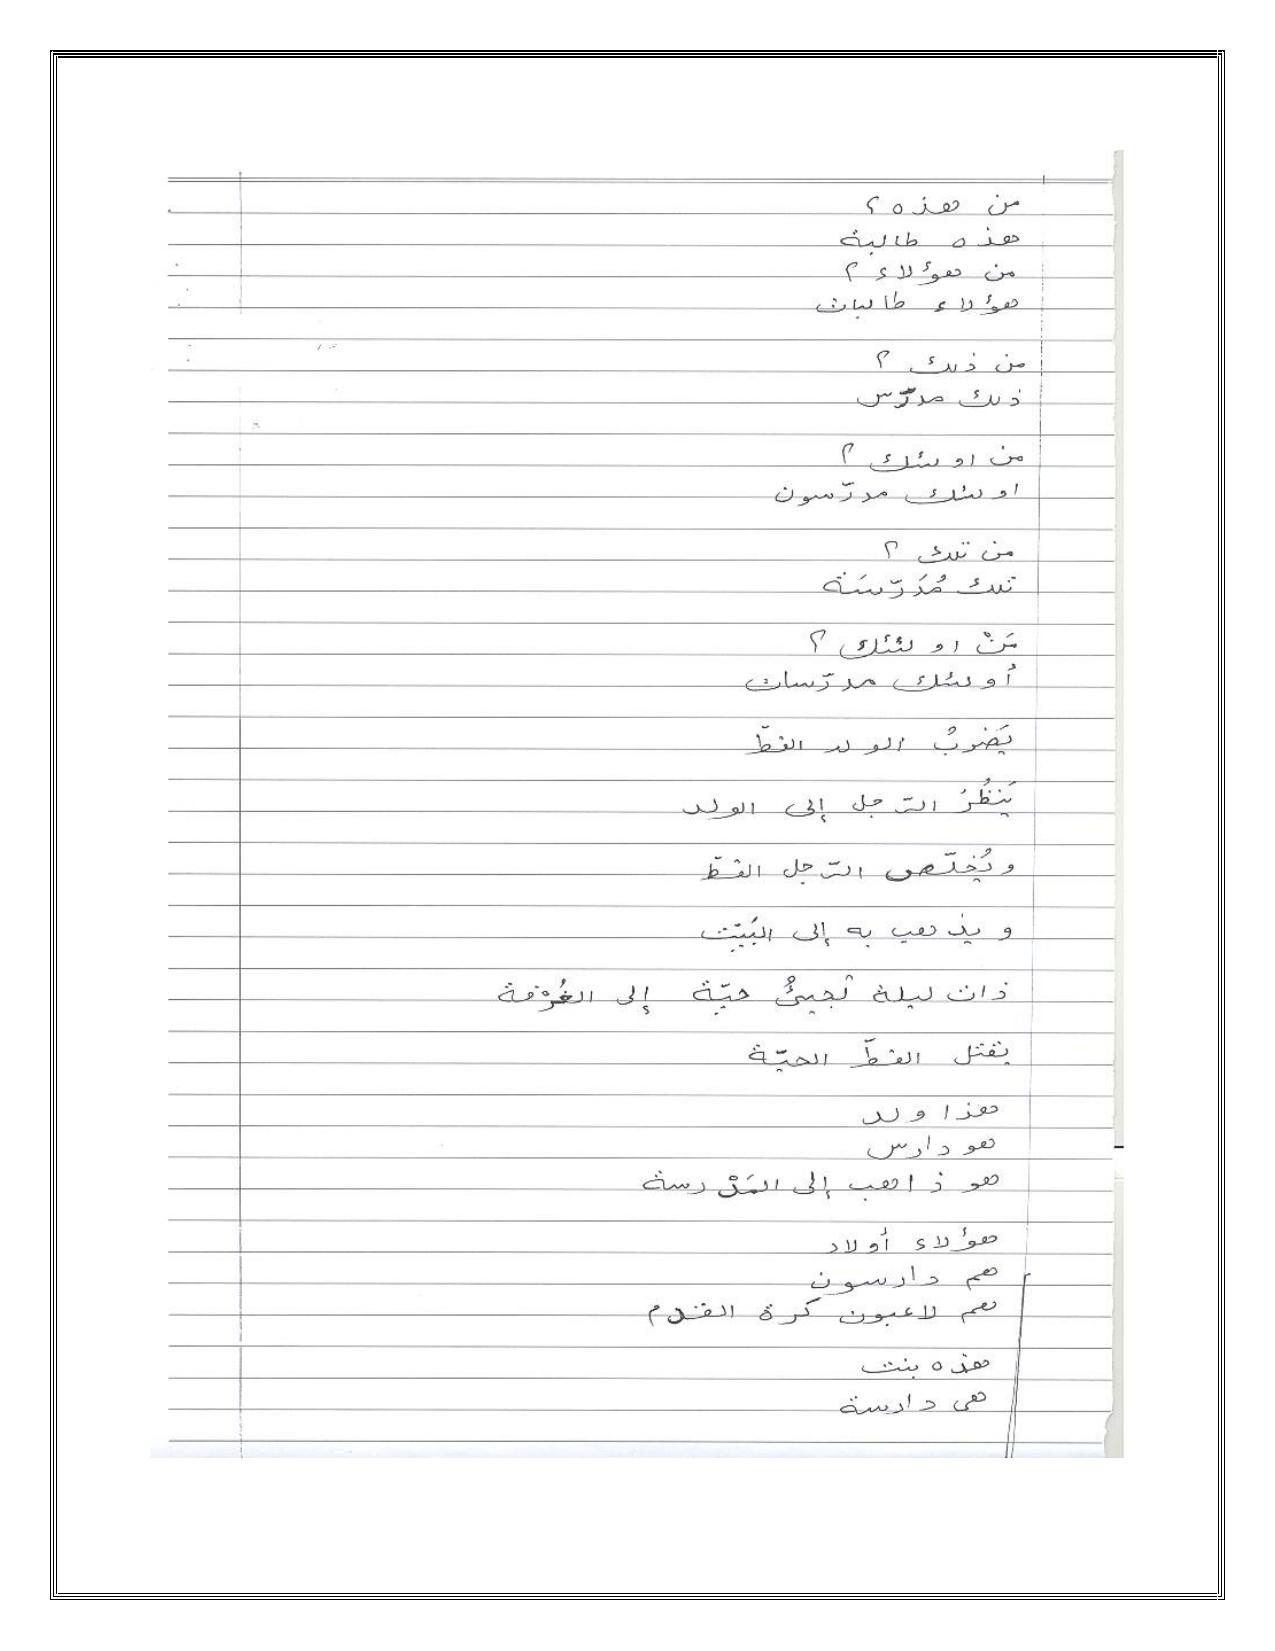 من هذه ؟
هذه طالبة
من هؤلاء ؟
هؤلاء طالبات
من ذلك ؟
ذلك مدرّس
من اولئك ؟
اولئك مدرّسون
من تلك ؟
تلك مُدَرّسَة
مَنْ اولئك ؟
أولئك مدرّسات
يَضربُ الولد القطّ
يَنظُرُ الرّجل إلى الولد
ويُخلّص الرّجل القطّ
ويذهب به إلى البَيْت
ذات ليلة تجيئُ حيّة إلى الغُرْفة
يقتل القطّ الحيّة
هذا ولد
هو دارس
هو ذاهب إلى المَدْرسة
هؤلاء أولاد
هم دارسون
هم لاعبون كرة القدم
هذه بنت
هى دارسة